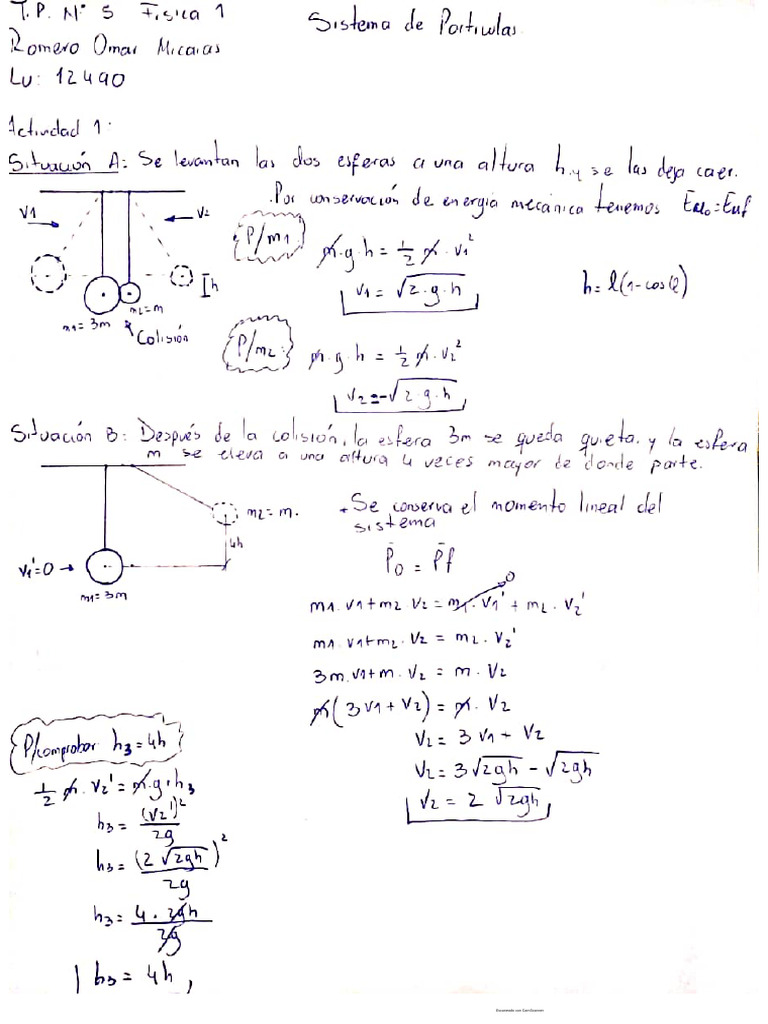 T.P. N° 5 Física 1
Sistema de Particulas
Romero Omar Micaias
Lu: 12490
Actividad 1:
Situación A: Se levantan las dos esferas a una altura h, y se las deja caer.
Por conservación de energía mecánica tenemos EM₀ = EMf
V1
V2
h
m2=m
m1=3m
Colisión
P/m1:
m·g·h = 1/2 m·V1²
V1 = √2·g·h
h = l(1-cosφ)
P/m2:
m·g·h = 1/2 m·V2²
V2 = -√2·g·h
Situación B: Después de la colisión, la esfera 3m se queda quieta y la esfera
m se eleva a una altura 4 veces mayor de donde parte.
m2 = m.
4h
V1'=0
m1=3m
Se conserva el momento lineal del
sistema
P̄₀ = P̄f
m1·V1+m2 V2 = m1·V1' + m2·V2'
0
m1·V1+m2·V2 = m2·V2'
3m·V1+m·V2 = m·V2
m(3V1+V2) = m·V2
V2 = 3V1 + V2
V2 = 3√2gh - √2gh
V2 = 2 √2gh
P/comprobar h3=4h
1/2 m·V2' = m·g·h3
h3 = (V2')²/2g
h3 = (2 √2gh)²/2g
h3 = 4·2gh/2g
h3 = 4h
Escaneado con CamScanner